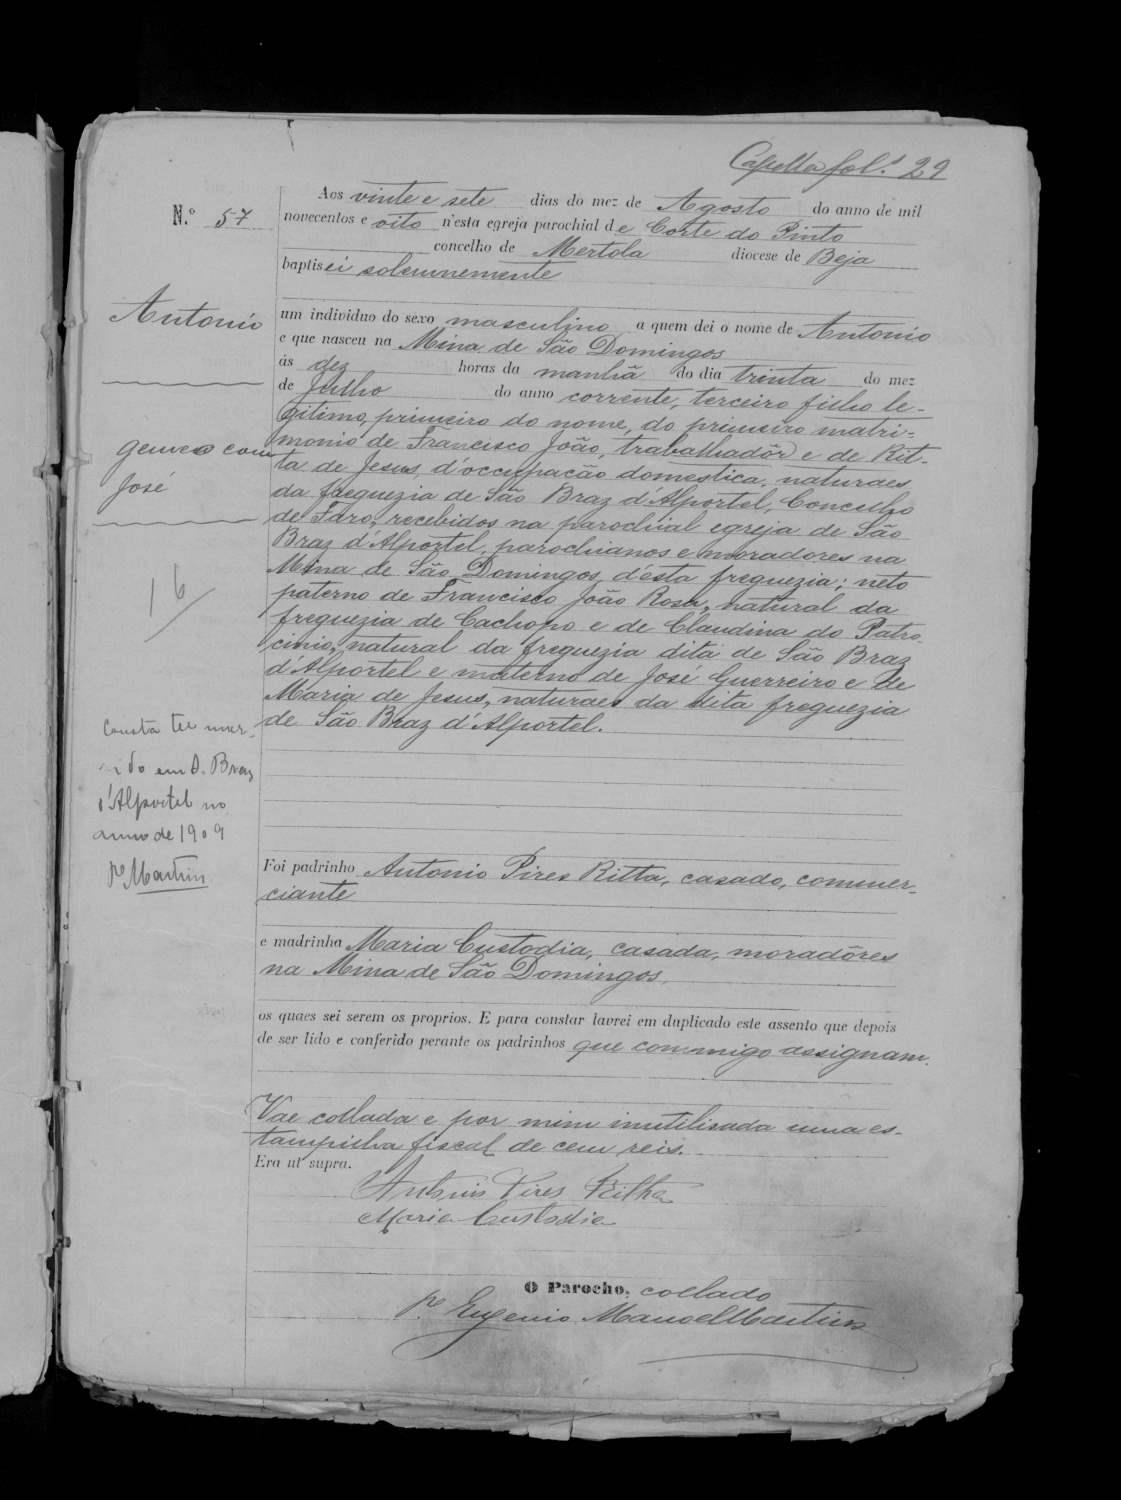 Capella fol.s 29
N.º 57
Aos vinte e sete dias do mez de Agosto do anno de mil
novecentos e oito n'esta egreja parochial de Corte do Pinto
concelho de Mertola diocese de Beja
baptisei solemnemente
Antonio
um individuo do sexo masculino a quem dei o nome de Antonio
e que nasceu na Mina de São Domingos
ás dez horas da manhã do dia trinta do mez
de Julho do anno corrente, terceiro filho le-
gitimo, primeiro do nome, do primeiro matri-
monio de Francisco João, trabalhadôr e de Rit-
ta de Jesus, d'occupação domestica, naturaes
da freguezia de São Braz d'Alportel, Concelho
de Faro, recebidos na parochial egreja de São
Braz d'Alportel, parochianos e moradores na
Mina de São Domingos, d'esta freguezia; neto
paterno de Francisco João Rosa, natural da
freguezia de Cachopo e de Claudina do Patro-
cinio, natural da freguezia dita de São Braz
d'Alportel e materno de José Guerreiro e de
Maria de Jesus, naturaes da dita freguezia
de São Braz d'Alportel.
gemeo com
José
16
Consta ter mor-
rido em S. Braz
d'Alportel no
anno de 1909
Pe Martins
Foi padrinho Antonio Pires Ritta, casado, commer-
ciante
e madrinha Maria Custodia, casada, moradôres
na Mina de São Domingos,
os quaes sei serem os proprios. E para constar lavrei em duplicado este assento que depois
de ser lido e conferido perante os padrinhos que commigo assignam.
Vae collada e por mim inutilisada uma es-
tampilha fiscal de cem reis.
Era ut supra.
Antonio Pires Ritta
Maria Custodia
O Parocho, collado
Pe Eugenio Manoel Martins